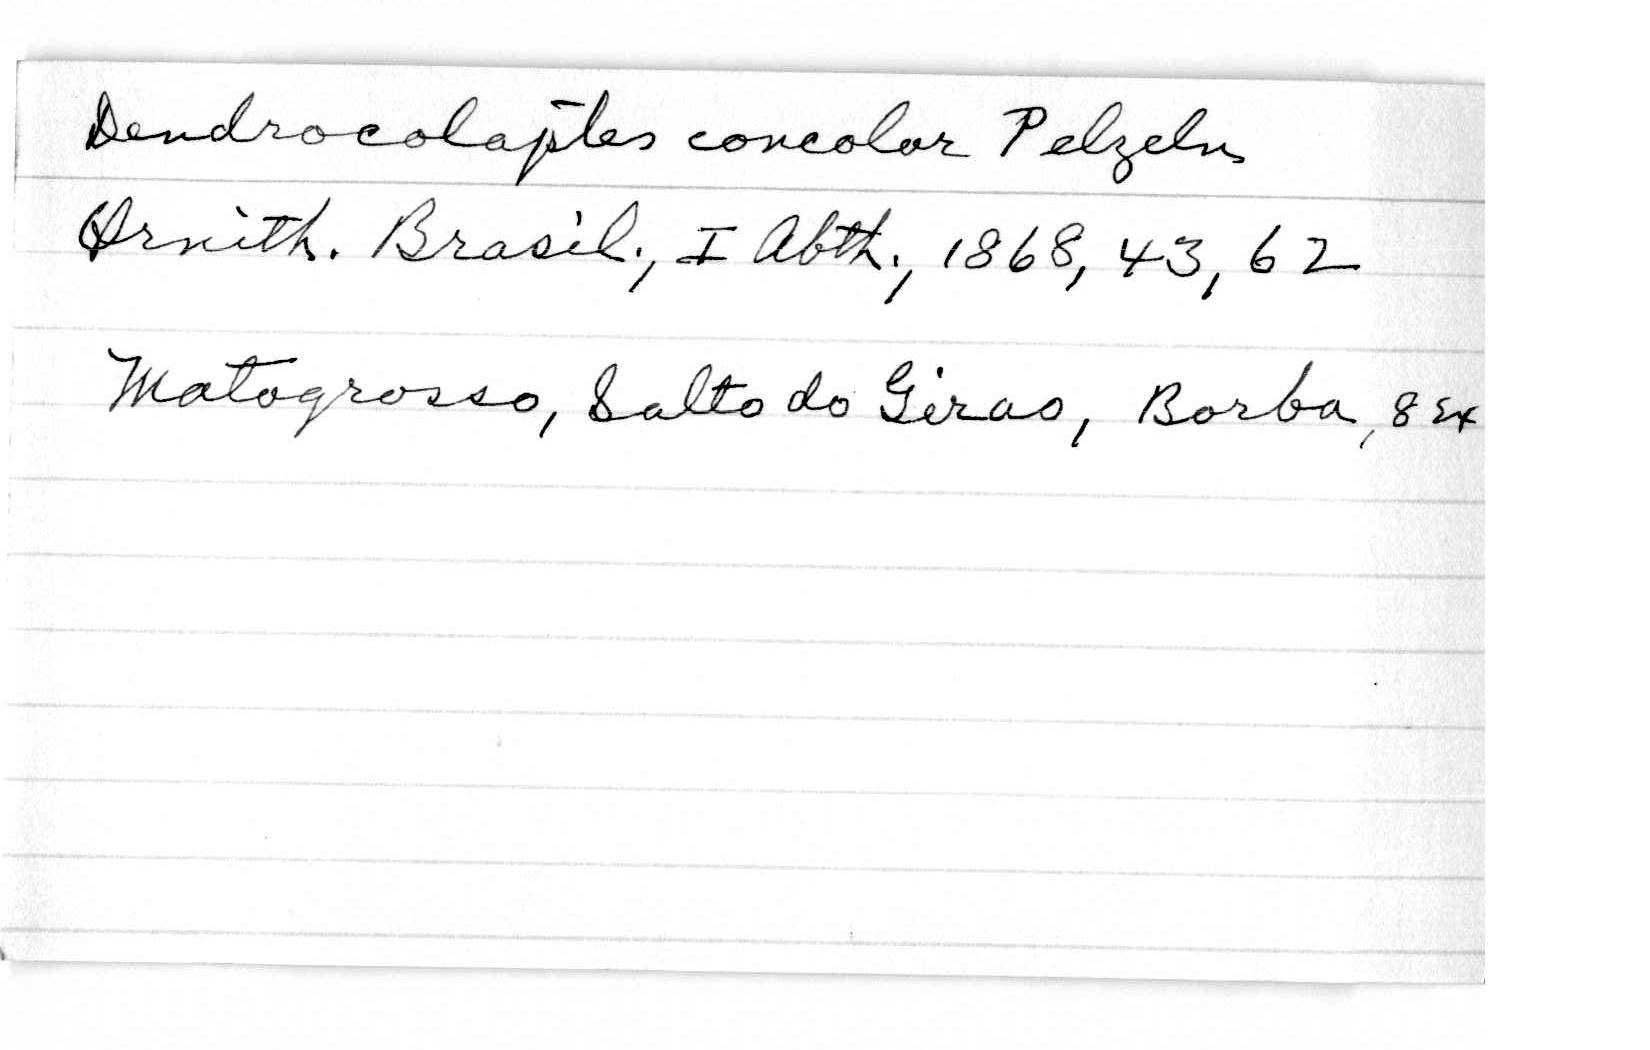 Dendrocolaptes concolor Pelzeln
Ornith. Brasil., I Abth., 1868, 43, 62
Matogrosso, Salto do Girao, Borba, 8 Ex